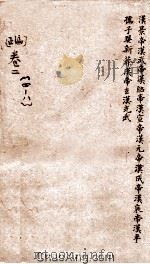 漢景帝漢武帝漢昭帝漢宣帝漢元帝漢成帝漢哀帝漢平
孺子嬰新莽漢帝玄漢光武
卷二